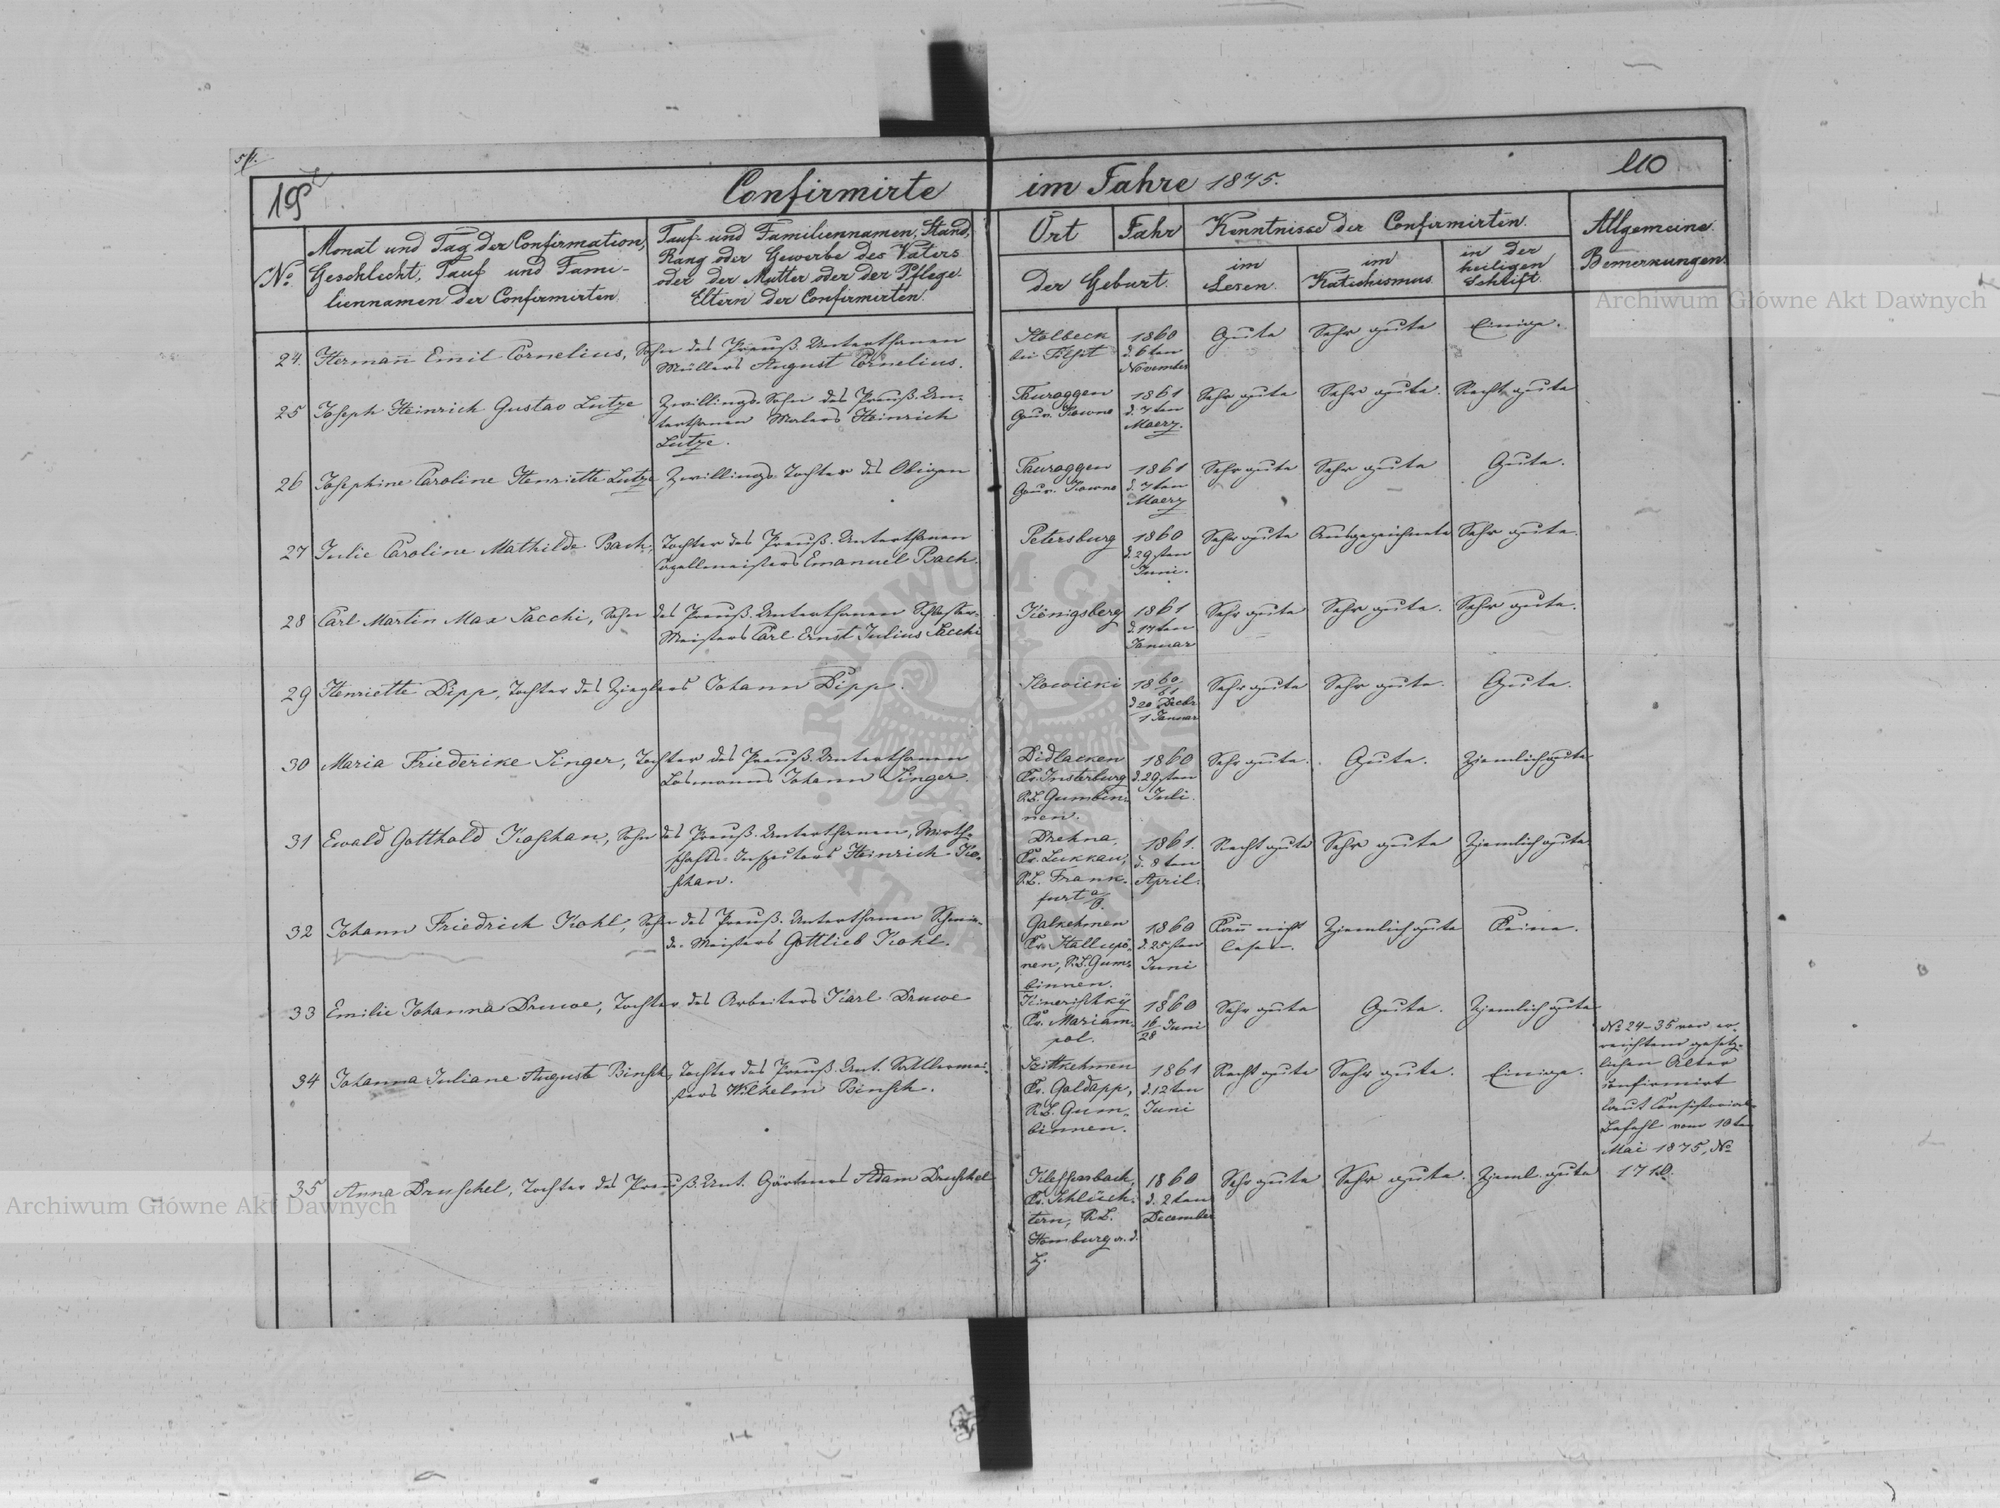 Confirmirte im Jahre 1875.
No
Monat und Tag der Confirmation,
Geschlecht, Tauf und Fami-
liennamen der Confirmirten
Tauf- und Familiennamen, Stand,
Rang oder Gewerbe des Vaters
oder der Mutter oder der Pflege-
Eltern der Confirmirten.
Ort Jahr
der Geburt.
Kenntnisse der Confirmirten.
im
Lesen.
im
Katechismus
in der
heiligen
Schrift.
Allgemeine
Bemerkungen.
24. Hermann Emil Cornelius, Sohn des Preuß. Unterthanen
Müllers August Cornelius.
bei Tilsit
1860
d. 6ten
November
Gute Sehr gute Einige.
25 Joseph Heinrich Gustav Lutze
Zwillings-Sohn des Preuß. Un-
terthanen Malers Heinrich
Lutze.
Tauroggen
Gouv. Kowno
1861
d. 7ten
Maerz.
Sehr gute Sehr gute. Recht gute
26 Josephine Caroline Henriette Lutze Zwillings-Tochter des Obigen
Tauroggen
Gouv. Kowno
1861
d. 7ten
Maerz
Sehr gute Sehr gute Gute.
27 Julie Caroline Mathilde Bach, Tochter des Preuß. Unterthanen
Capellmeisters Emanuel Bach.
Petersburg
1860
d. 29sten
Juni.
Sehr gute Ausgezeichnete Sehr gute.
28 Carl Martin Max Sacchi, Sohn des Preuß. Unterthanen
Meisters Carl Ernst Julius Sacchi
Königsberg
1861
d. 17ten
Januar
Sehr gute Sehr gute. Sehr gute.
29 Henriette Dipp, Tochter des Zieglers Johann Dipp.
18 60/61
d 20 Decbr
1 Januar
Sehr gute Sehr gute. Gute.
30 Maria Friederike Singer, Tochter des Preuß. Unterthanen
Losmanns Johann Singer.
Didlacken
Kr. Insterburg
R.B. Gumbin-
nen.
1860
d. 29sten
Juli.
Sehr gute. Gute. Ziemlich gute
31 Ewald Gotthold Koschan, Sohn des Preuß. Unterthanen, Wirth-
schafts-Inspectors Heinrich Ko-
schan.
Drehna,
Kr. Lukkau,
R.B. Frank-
furt a/O.
1861.
d. 8ten
April.
Recht gute Sehr gute Ziemlich gute
32 Johann Friedrich Kohl, Sohn des Preuß. Unterthanen Schmie-
de-Meisters Gottlieb Kohl.
Galkehmen
Kr. Stallupö-
nen, R.B. Gum-
binnen.
1860
d. 25sten
Juni
Kann nicht
lesen.
Ziemlich gute Keine.
33 Emilie Johanna Druwe, Tochter des Arbeiters Karl Druwe
Kr. Mariam-
pol.
1860
16/28 Juni
Sehr gute Gute. Ziemlich gute
34 Johanna Juliane Auguste Binsch, Tochter des Preuß. Unt. Sattlermei-
sters Wilhelm Binsch.
Szittkehmen
Kr. Goldapp,
R.B. Gum-
binnen.
1861
d. 12ten
Juni
Recht gute Sehr gute. Einige.
No 24-35 vor er-
reichtem gesetz-
lichen Alter
confirmirt
laut Consistorial-
Befehl vom 10ten
Mai 1875, No
35 Anna Druschel, Tochter des Preuß. Unt. Gärtners Adam Druschel
Kr. Schlüch-
tern, R.B.
Homburg v. d.
H.
1860
d. 2ten
December
Sehr gute Sehr gute. Zieml. gute
Archiwum Główne Akt Dawnych
Archiwum Główne Akt Dawnych